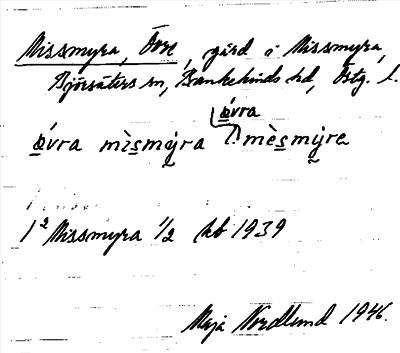 Missmyra, Övre, gård i Missmyra,
Björsäters sn, Bankekinds hd, Östg. l.
ǿvra
ǿvra mìsmýra l. mèsmýra
1² Missmyra 1/2 kb 1939
Maja Nordlund 1946.